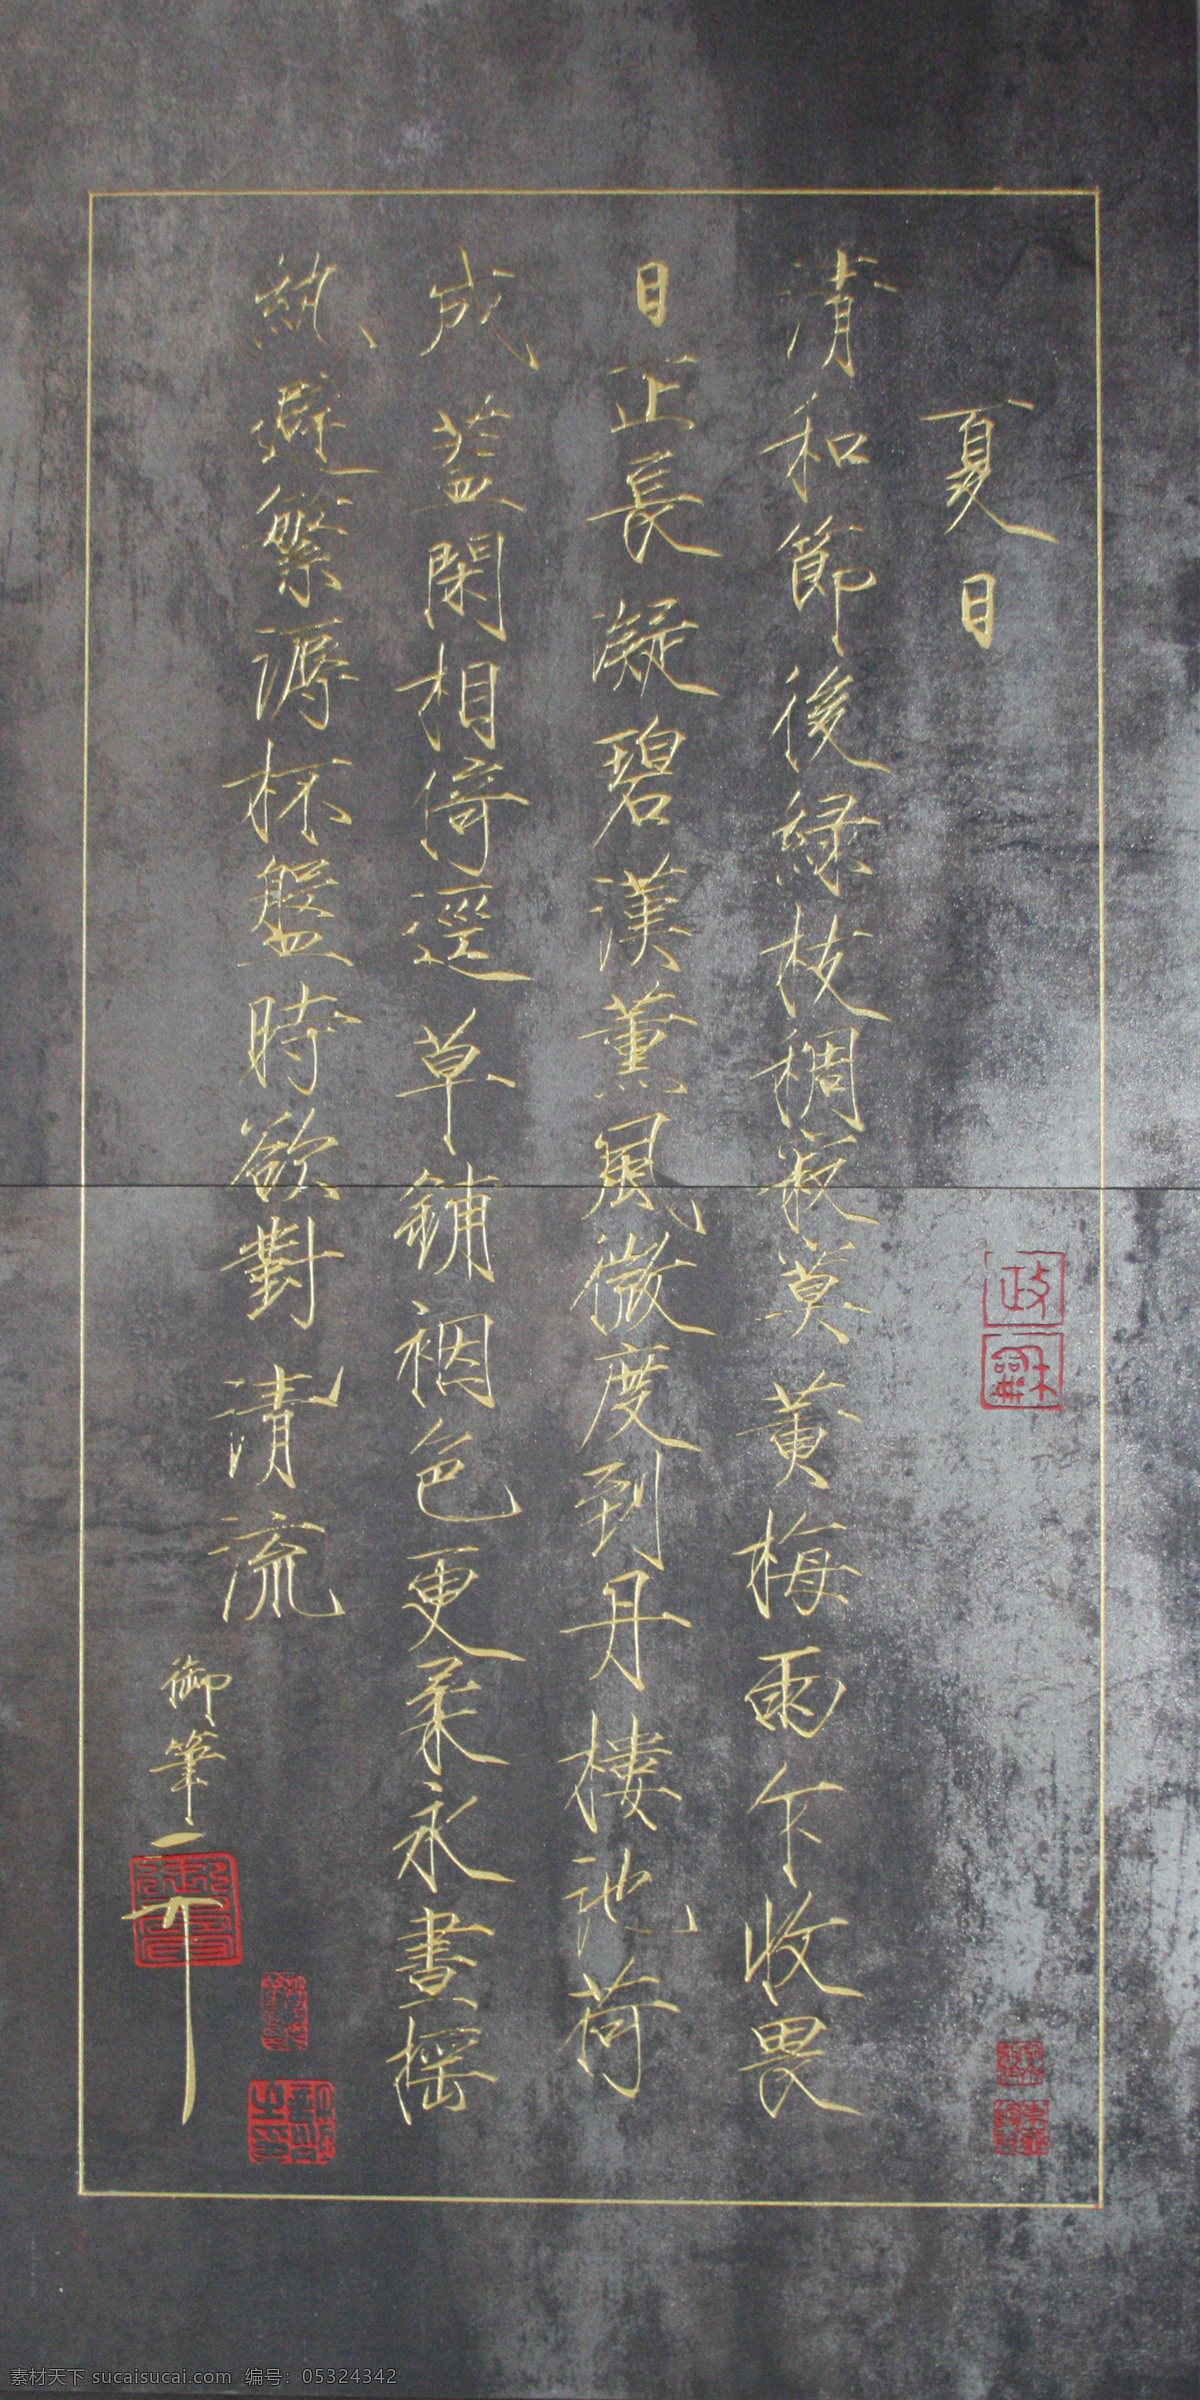 夏日
清和節後綠枝稠寂莫黃梅雨乍收畏
日正長凝碧漢薰風微度到丹樓池荷
成蓋閑相倚逕草鋪裀色更柔永晝搖
紈避繁溽杯盤時欲對清流
御筆
政
龢
素材天下 sucaisucai.com 编号：05324342